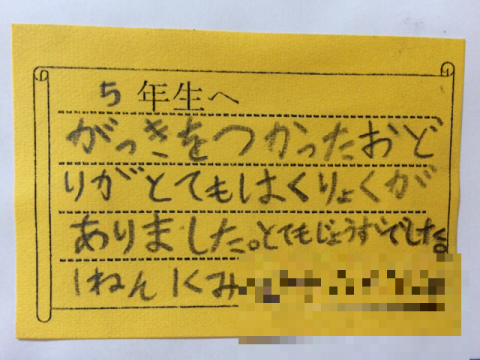 5年生へ
がっきをつかったおど
りがとてもはくりょくが
ありました。とてもじょうずでした。
1ねん1くみ